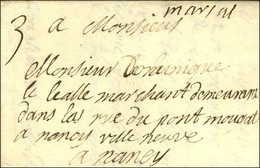 3
marsal
a Monsieur
Monsieur Dominique
le ealle marchant demeurant
dans la rue du pont mouat
a nancy ville neuve
a nancy